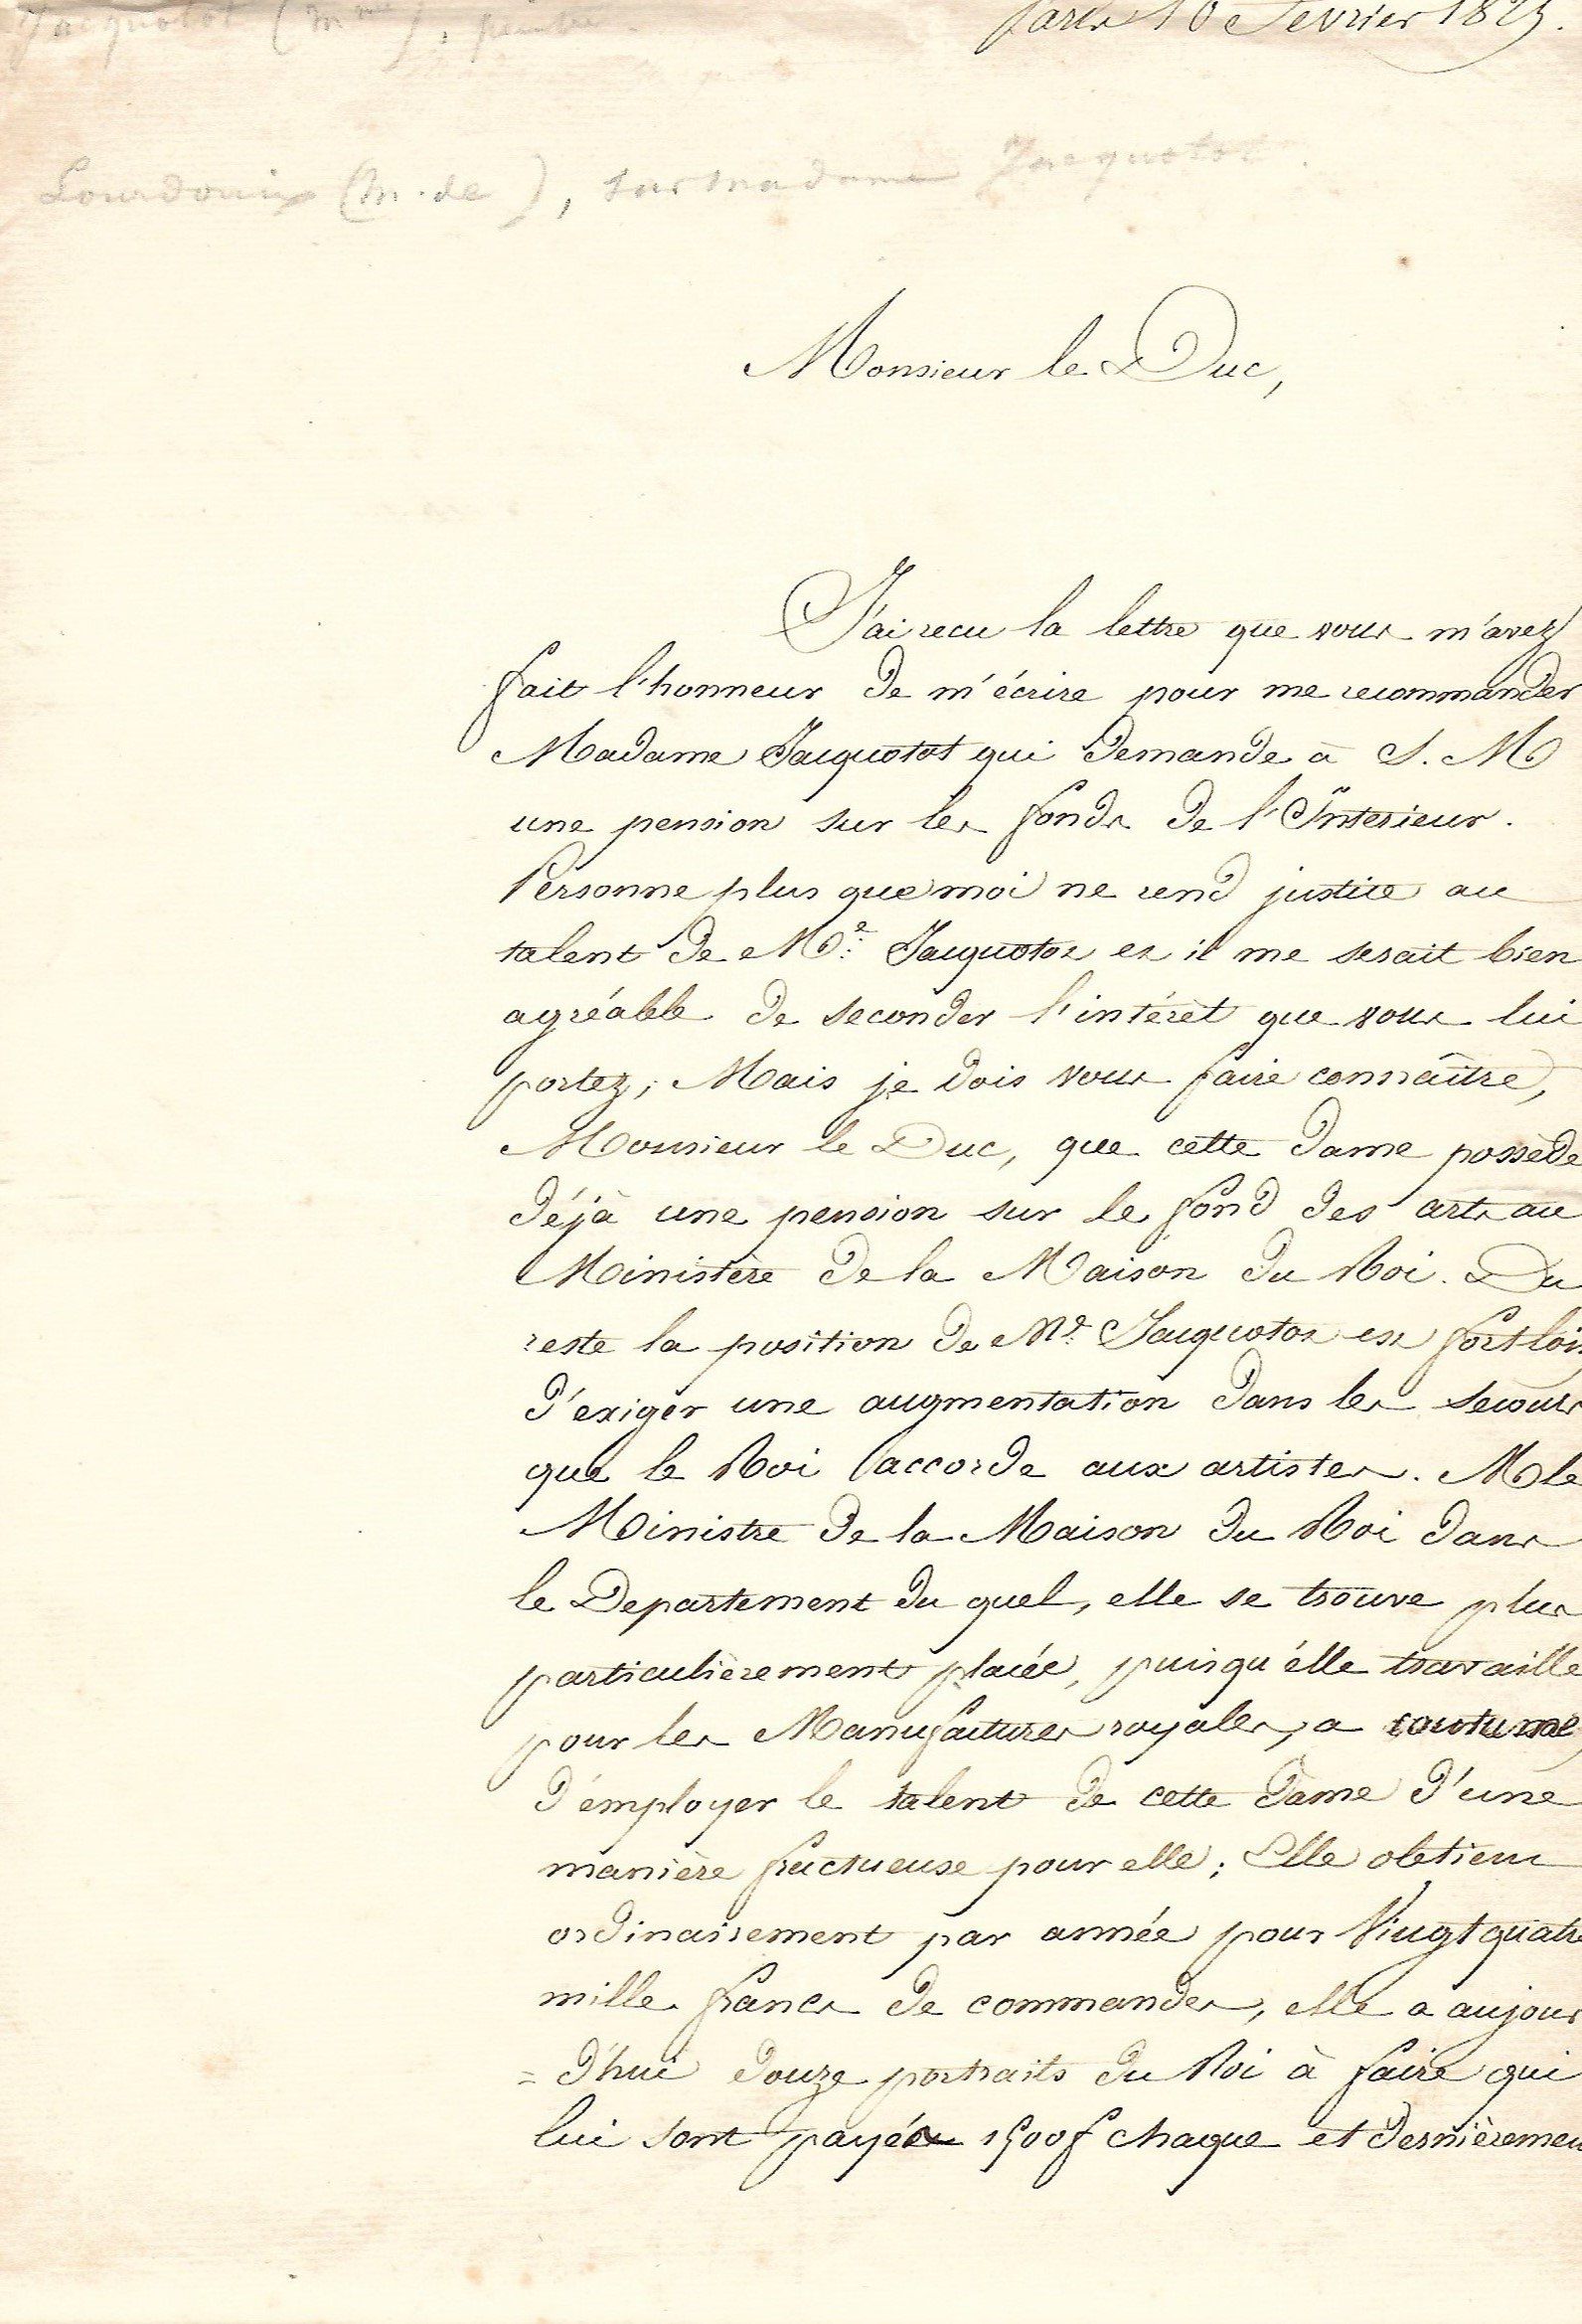 Jacquotot (Mme), peintre
Paris 10 Fevrier 1825.
Lourdoueix (M. de), sur madame Jacquotot.
Monsieur le Duc,
J'ai recu la lettre que vous m'avez
fait l'honneur de m'écrire pour me recommander
Madame Jacquotot qui demande à S. M
une pension sur les fonds de l'Interieur.
Personne plus que moi ne rend justice au
talent de Me. Jacquotot et il me serait bien
agréable de seconder l'intérèt que vous lui
portez; Mais je dois vous faire connaître,
Monsieur le Duc, que cette dame possède
déjà une pension sur le fond des arts au
Ministère de la Maison du Roi. Du
reste la position de Me. Jacquotot est fort loin
d'exiger une augmentation dans les secours
que le Roi accorde aux artistes. M le
Ministre de la Maison du Roi dans
le Departement du quel, elle se trouve plus
particulièrement placée, puisqu'élle travaille
pour les Manufactures royales, a coutume
d'employer le talent de cette dame d'une
manière fructueuse pour elle; Elle obtient
ordinairement par année pour Vingt quatre
mille francs de commandes, elle a aujour
= d'hui douze portraits du Roi à faire qui
lui sont payés 1500f chaque et dernièremen